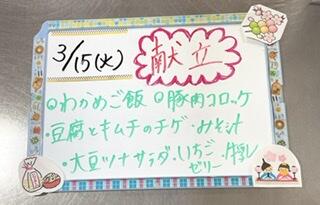 3/15(火) 献立
◎わかめご飯 ◎豚肉コロッケ
・豆腐とキムチのチゲ・みそ汁
・大豆ツナサラダ・いちごゼリー・牛乳